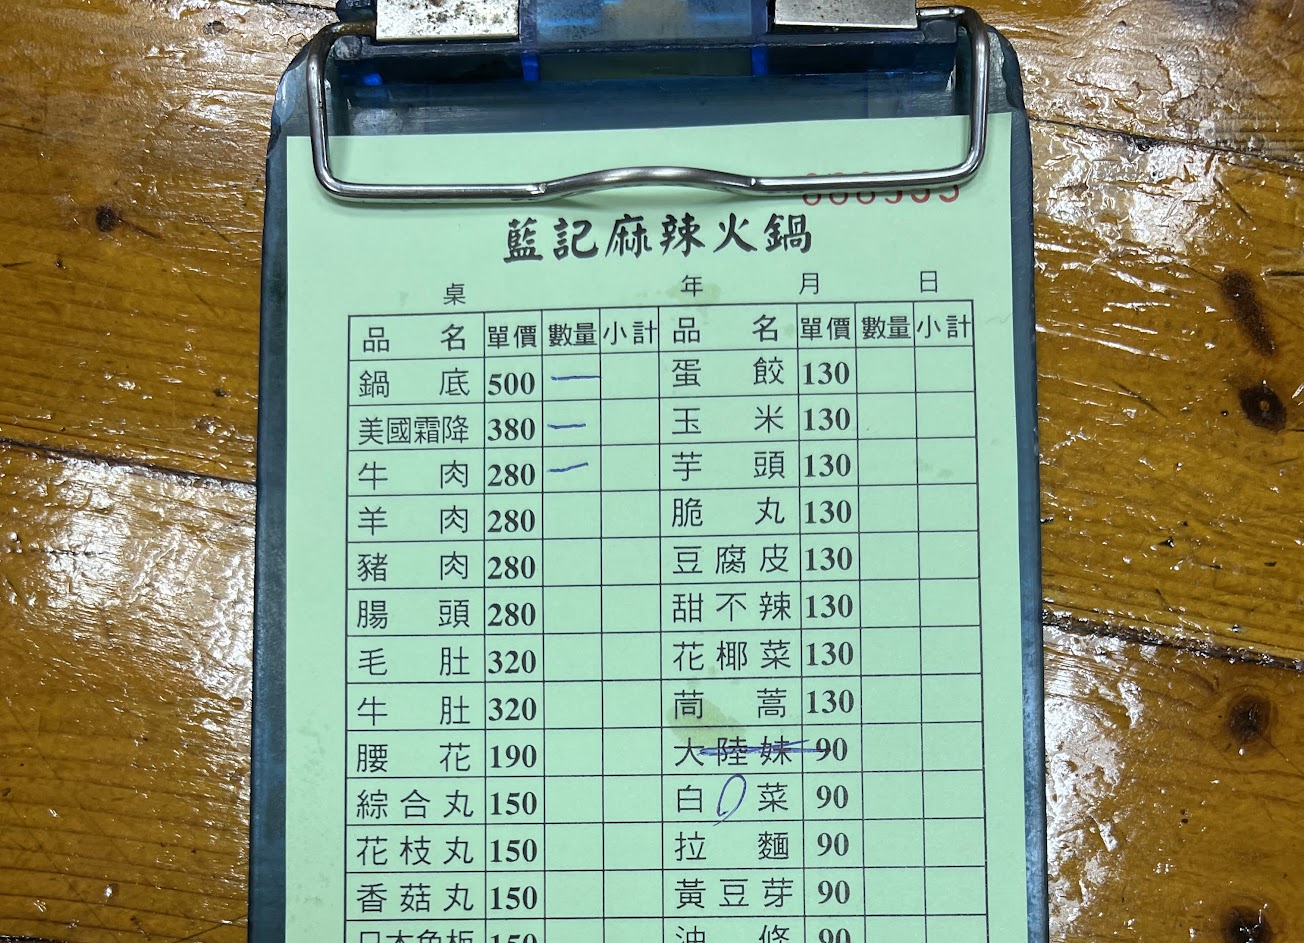 藍記麻辣火鍋
桌 年 月 日
品名 單價 數量 小計 品名 單價 數量 小計
鍋底 500 一 蛋餃 130
美國霜降 380 一 玉米 130
牛肉 280 一 芋頭 130
羊肉 280 脆丸 130
豬肉 280 豆腐皮 130
腸頭 280 甜不辣 130
毛肚 320 花椰菜 130
牛肚 320 茼蒿 130
腰花 190 大陸妹 90
綜合丸 150 白菜 90
花枝丸 150 拉麵 90
香菇丸 150 黃豆芽 90
日本魚板 150 油條 90